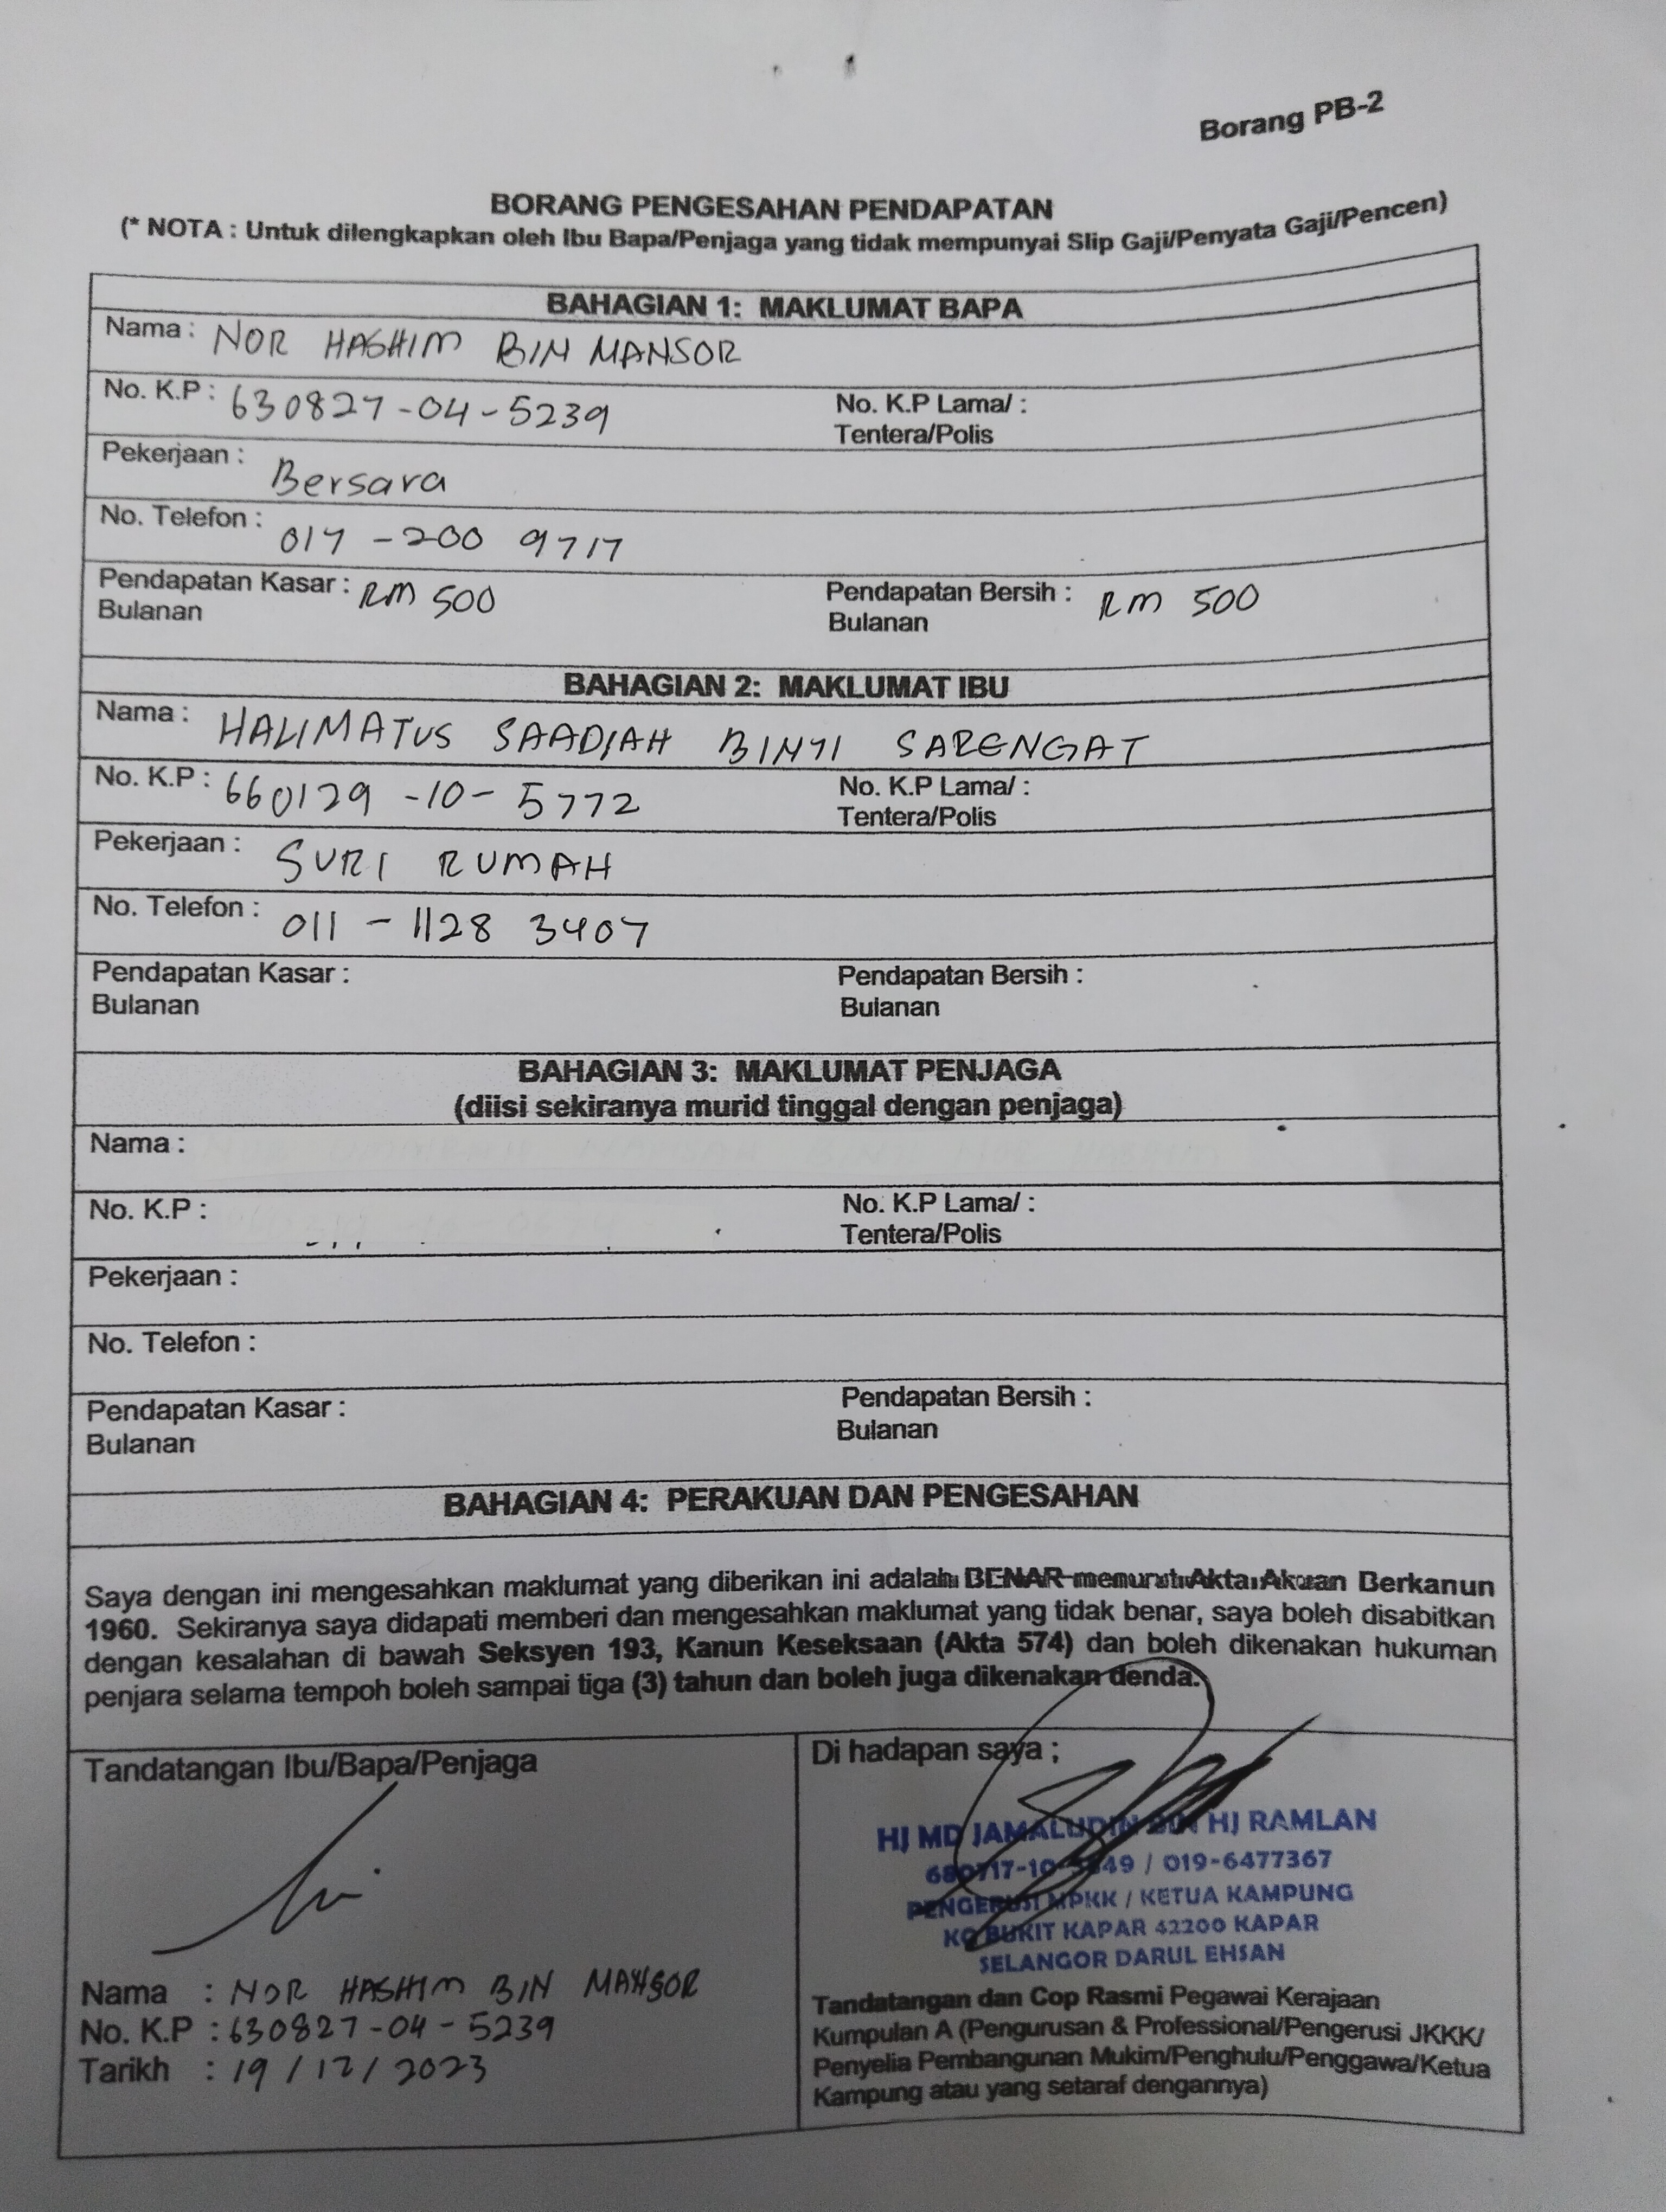 Borang PB-2
BORANG PENGESAHAN PENDAPATAN
(* NOTA : Untuk dilengkapkan oleh Ibu Bapa/Penjaga yang tidak mempunyai Slip Gaji/Penyata Gaji/Pencen)
BAHAGIAN 1: MAKLUMAT BAPA
Nama : NOR HASHIM BIN MANSOR
No. K.P : 630827-04-5239 No. K.P Lama/ :
Tentera/Polis
Pekerjaan : Bersara
No. Telefon : 017 -200 9717
Pendapatan Kasar : RM 500 Pendapatan Bersih : RM 500
Bulanan Bulanan
BAHAGIAN 2: MAKLUMAT IBU
Nama : HALIMATUS SAADIAH BINTI SARENGAT
No. K.P : 660129 -10- 5772 No. K.P Lama/ :
Tentera/Polis
Pekerjaan : SURI RUMAH
No. Telefon : 011 - 1128 3407
Pendapatan Kasar : Pendapatan Bersih :
Bulanan Bulanan
BAHAGIAN 3: MAKLUMAT PENJAGA
(diisi sekiranya murid tinggal dengan penjaga)
Nama :
No. K.P : No. K.P Lama/ :
Tentera/Polis
Pekerjaan :
No. Telefon :
Pendapatan Kasar : Pendapatan Bersih :
Bulanan Bulanan
BAHAGIAN 4: PERAKUAN DAN PENGESAHAN
Saya dengan ini mengesahkan maklumat yang diberikan ini adalah BENAR menurut Akta Akuan Berkanun
1960. Sekiranya saya didapati memberi dan mengesahkan maklumat yang tidak benar, saya boleh disabitkan
dengan kesalahan di bawah Seksyen 193, Kanun Keseksaan (Akta 574) dan boleh dikenakan hukuman
penjara selama tempoh boleh sampai tiga (3) tahun dan boleh juga dikenakan denda.
Tandatangan Ibu/Bapa/Penjaga
Nama : NOR HASHIM BIN MANSOR
No. K.P : 630827-04-5239
Tarikh : 19/12/2023
Di hadapan saya ;
HJ MD JAMALUDIN BIN HJ RAMLAN
/ 019-6477367
PENGERUSI MPKK / KETUA KAMPUNG
KG BUKIT KAPAR 42200 KAPAR
SELANGOR DARUL EHSAN
Tandatangan dan Cop Rasmi Pegawai Kerajaan
Kumpulan A (Pengurusan & Professional/Pengerusi JKKK/
Penyelia Pembangunan Mukim/Penghulu/Penggawa/Ketua
Kampung atau yang setaraf dengannya)